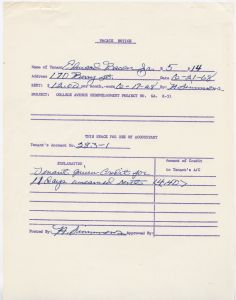 VACATE NOTICE
Name of Tenant Edward Jr. # 5 # 14
Address 170 Perry St. Date 10-21-68
RENT: $ 12.00 per month, 10-17-68 By: H. Simmons
PROJECT: COLLEGE AVENUE REDEVELOPMENT PROJECT NO. GA. R-31
THIS SPACE FOR USE OF ACCOUNTANT
Tenant's Account No. 383-1
EXPLANATION
Amount of Credit
to Tenant's A/C
Tenant given Credit for
18 days unearned rent
(4.40)
Posted By: H. Simmons Approved By: